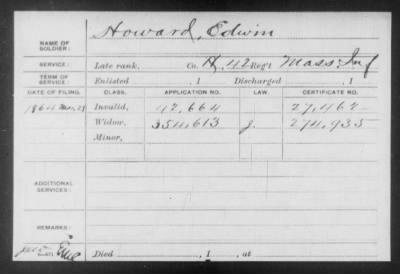 Howard, Edwin
NAME OF SOLDIER:
SERVICE: Late rank, Co. H, 42 Reg't Mass. Inf
TERM OF SERVICE: Enlisted , 1 Discharged , 1
DATE OF FILING. CLASS. APPLICATION NO. LAW. CERTIFICATE NO.
1864 Mar. 29 Invalid, 42,664 27,462
Widow, 354,613 J. 274,935
Minor,
ADDITIONAL SERVICES:
REMARKS:
Died , 1 , at